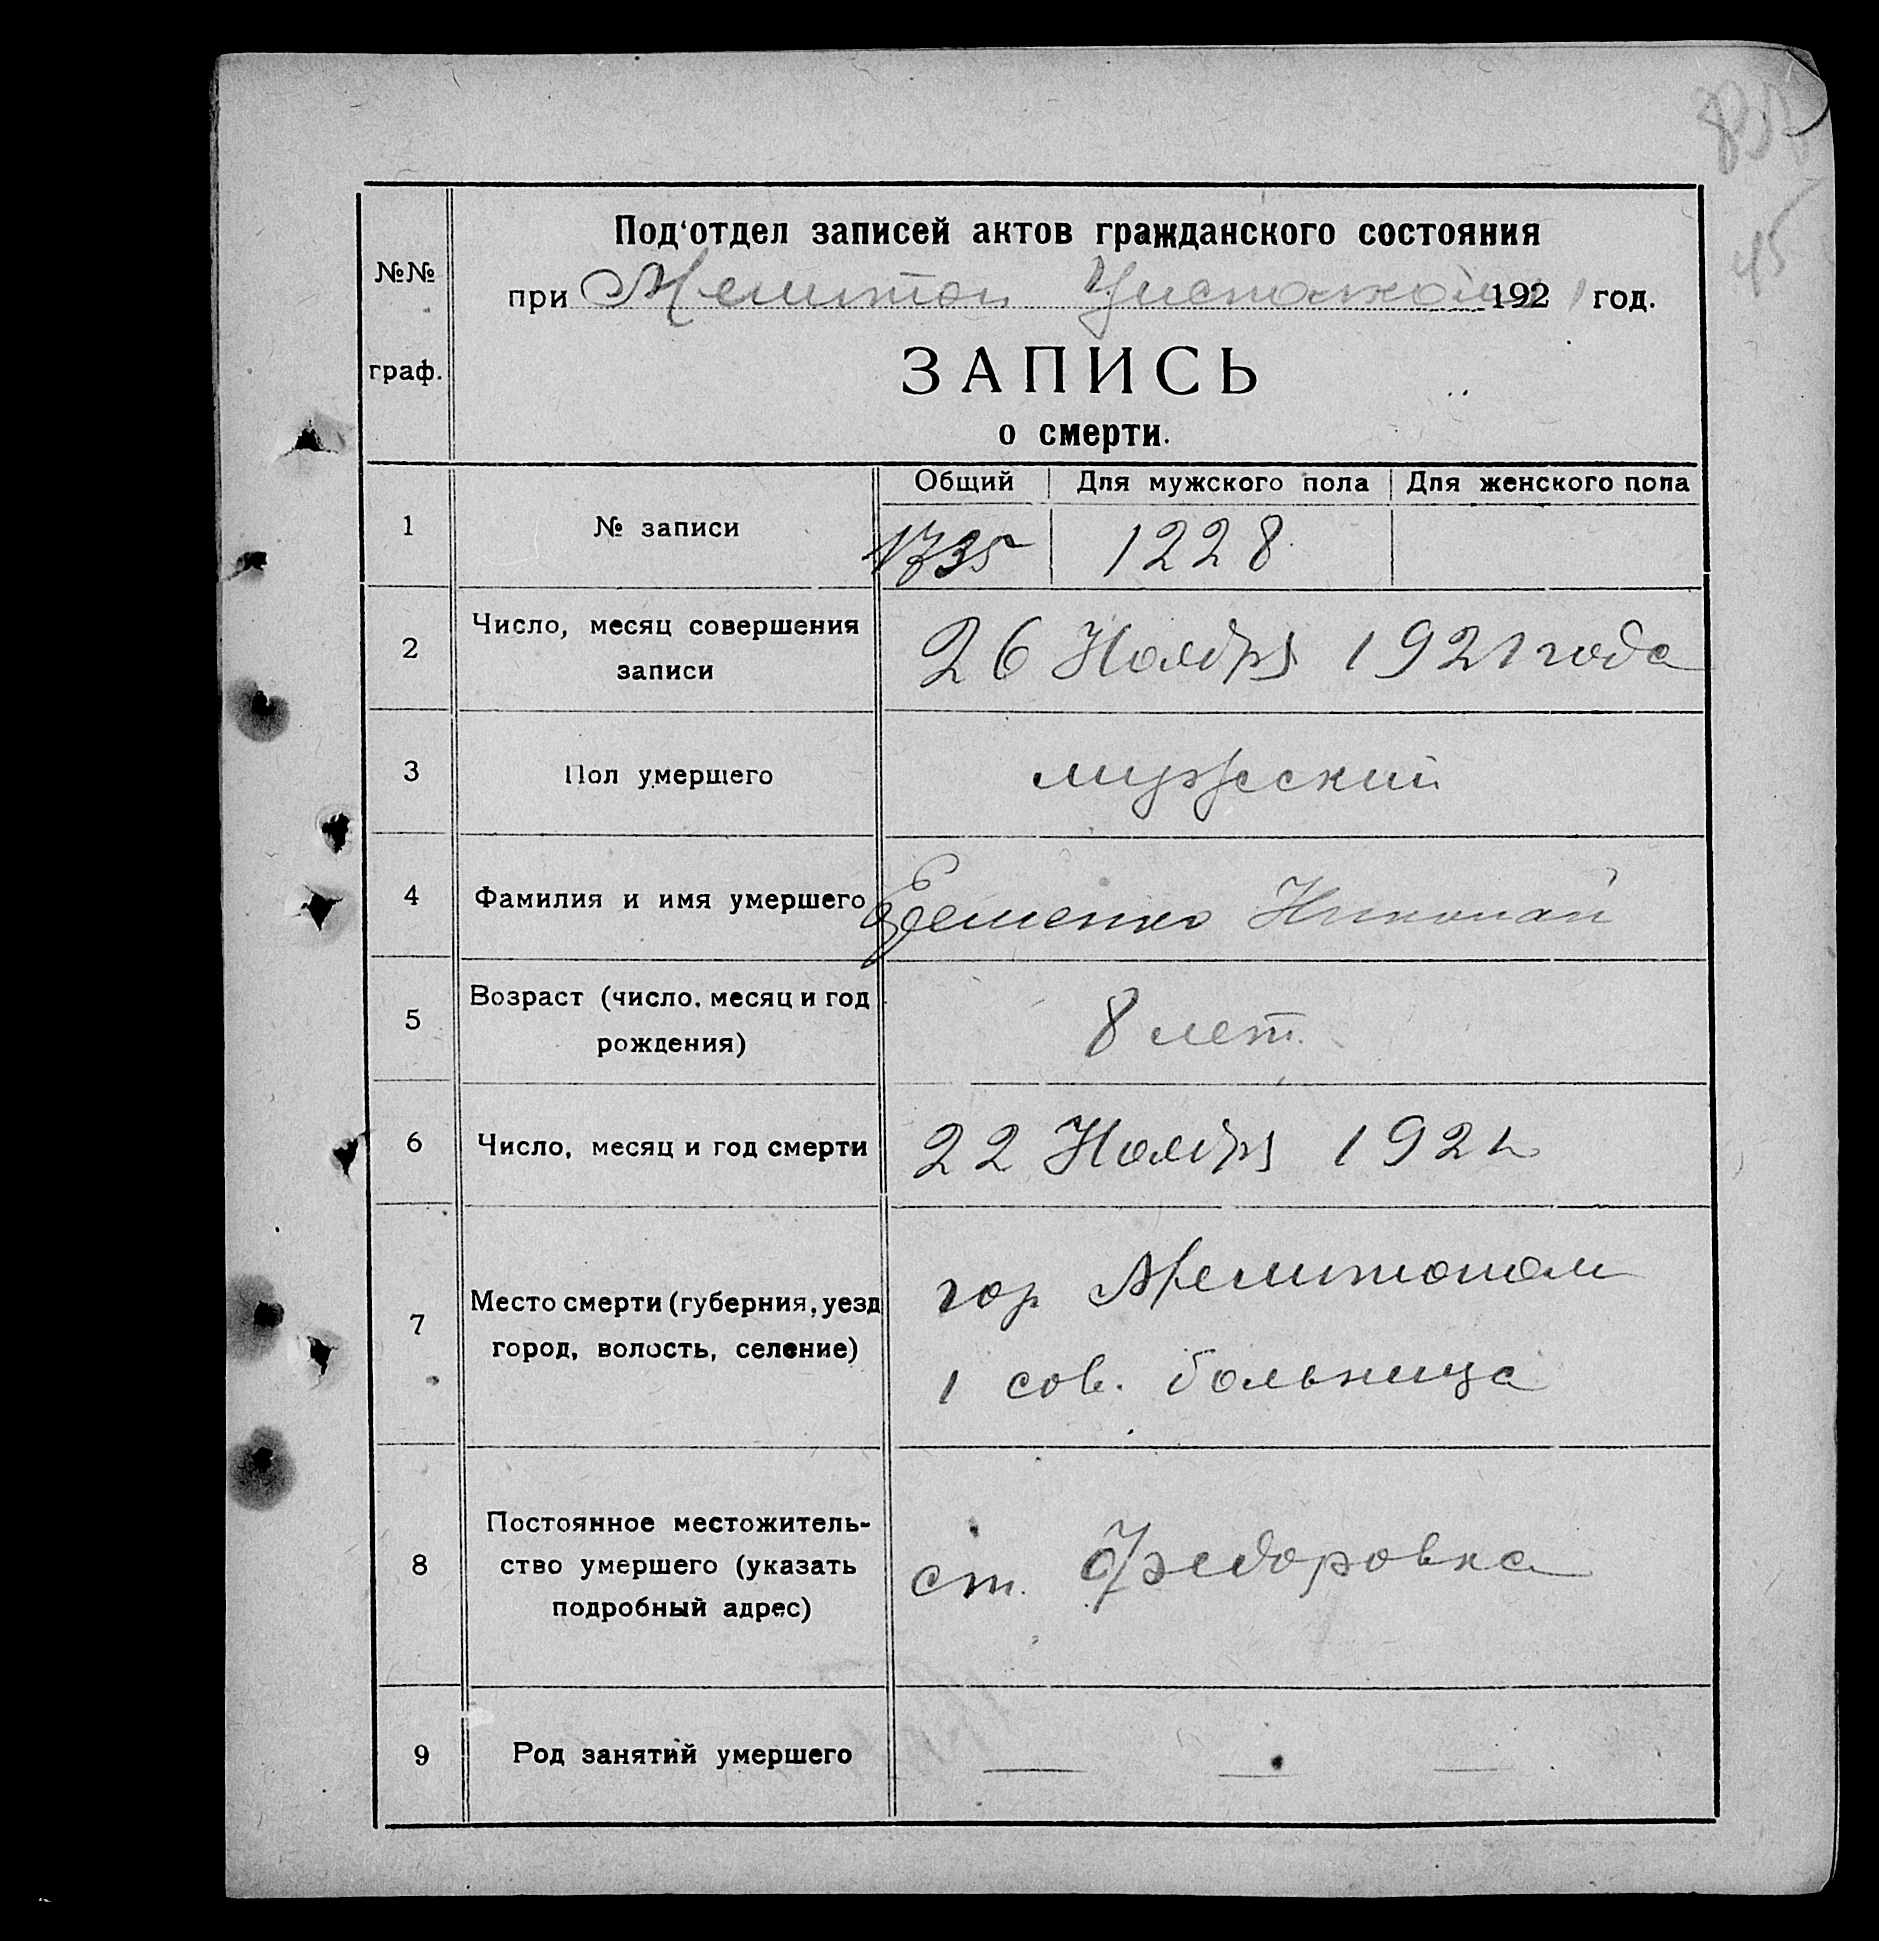 45
Под‘отдел записей актов гражданского состояния
№№
при Мелитоп Уисполкоме 1921 год.
ЗАПИСЬ
граф.
о смерти.
Общий Для мужского пола Для женского пола
1 № записи 1735 1228
2 Число, месяц совершения
записи
26 Ноября 1921 года
3 Пол умершего мужеский
4 Фамилия и имя умершего Николай
5 Возраст (число, месяц и год
рождения)
8 лет.
6 Число, месяц и год смерти 22 Ноября 1921
7 Место смерти (губерния, уезд
город, волость, селение)
гор Мелитополь
1 сов. больница
8 Постоянное местожитель-
ство умершего (указать
подробный адрес)
ст. Федоровка
9 Род занятий умершего — — —